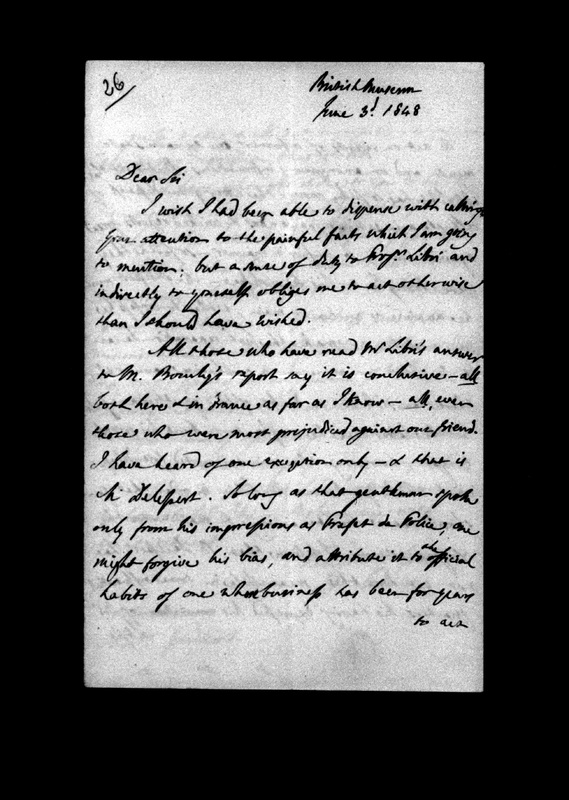 26/
British Museum
June 3d 1848
Dear Sir
I wish I had been able to dispense with calling
your attention to the painful facts which I am going
to mention; but a sense of duty to Profr. Libri and
indirectly to yourself obliges me to act otherwise
than I should have wished.
All those who have read Mr Libri's answer
to M. Boucly's report say it is conclusive – all
both here & in France as far as I know – all, even
those who were most prejudiced against our friend.
I have heard of one exception only – & that is
Mr Delessert. So long as that gentleman spoke
only from his impressions as Prefet de Police, one
might forgive his bias, and attribute it to the official
habits of one whose business has been for years
to act